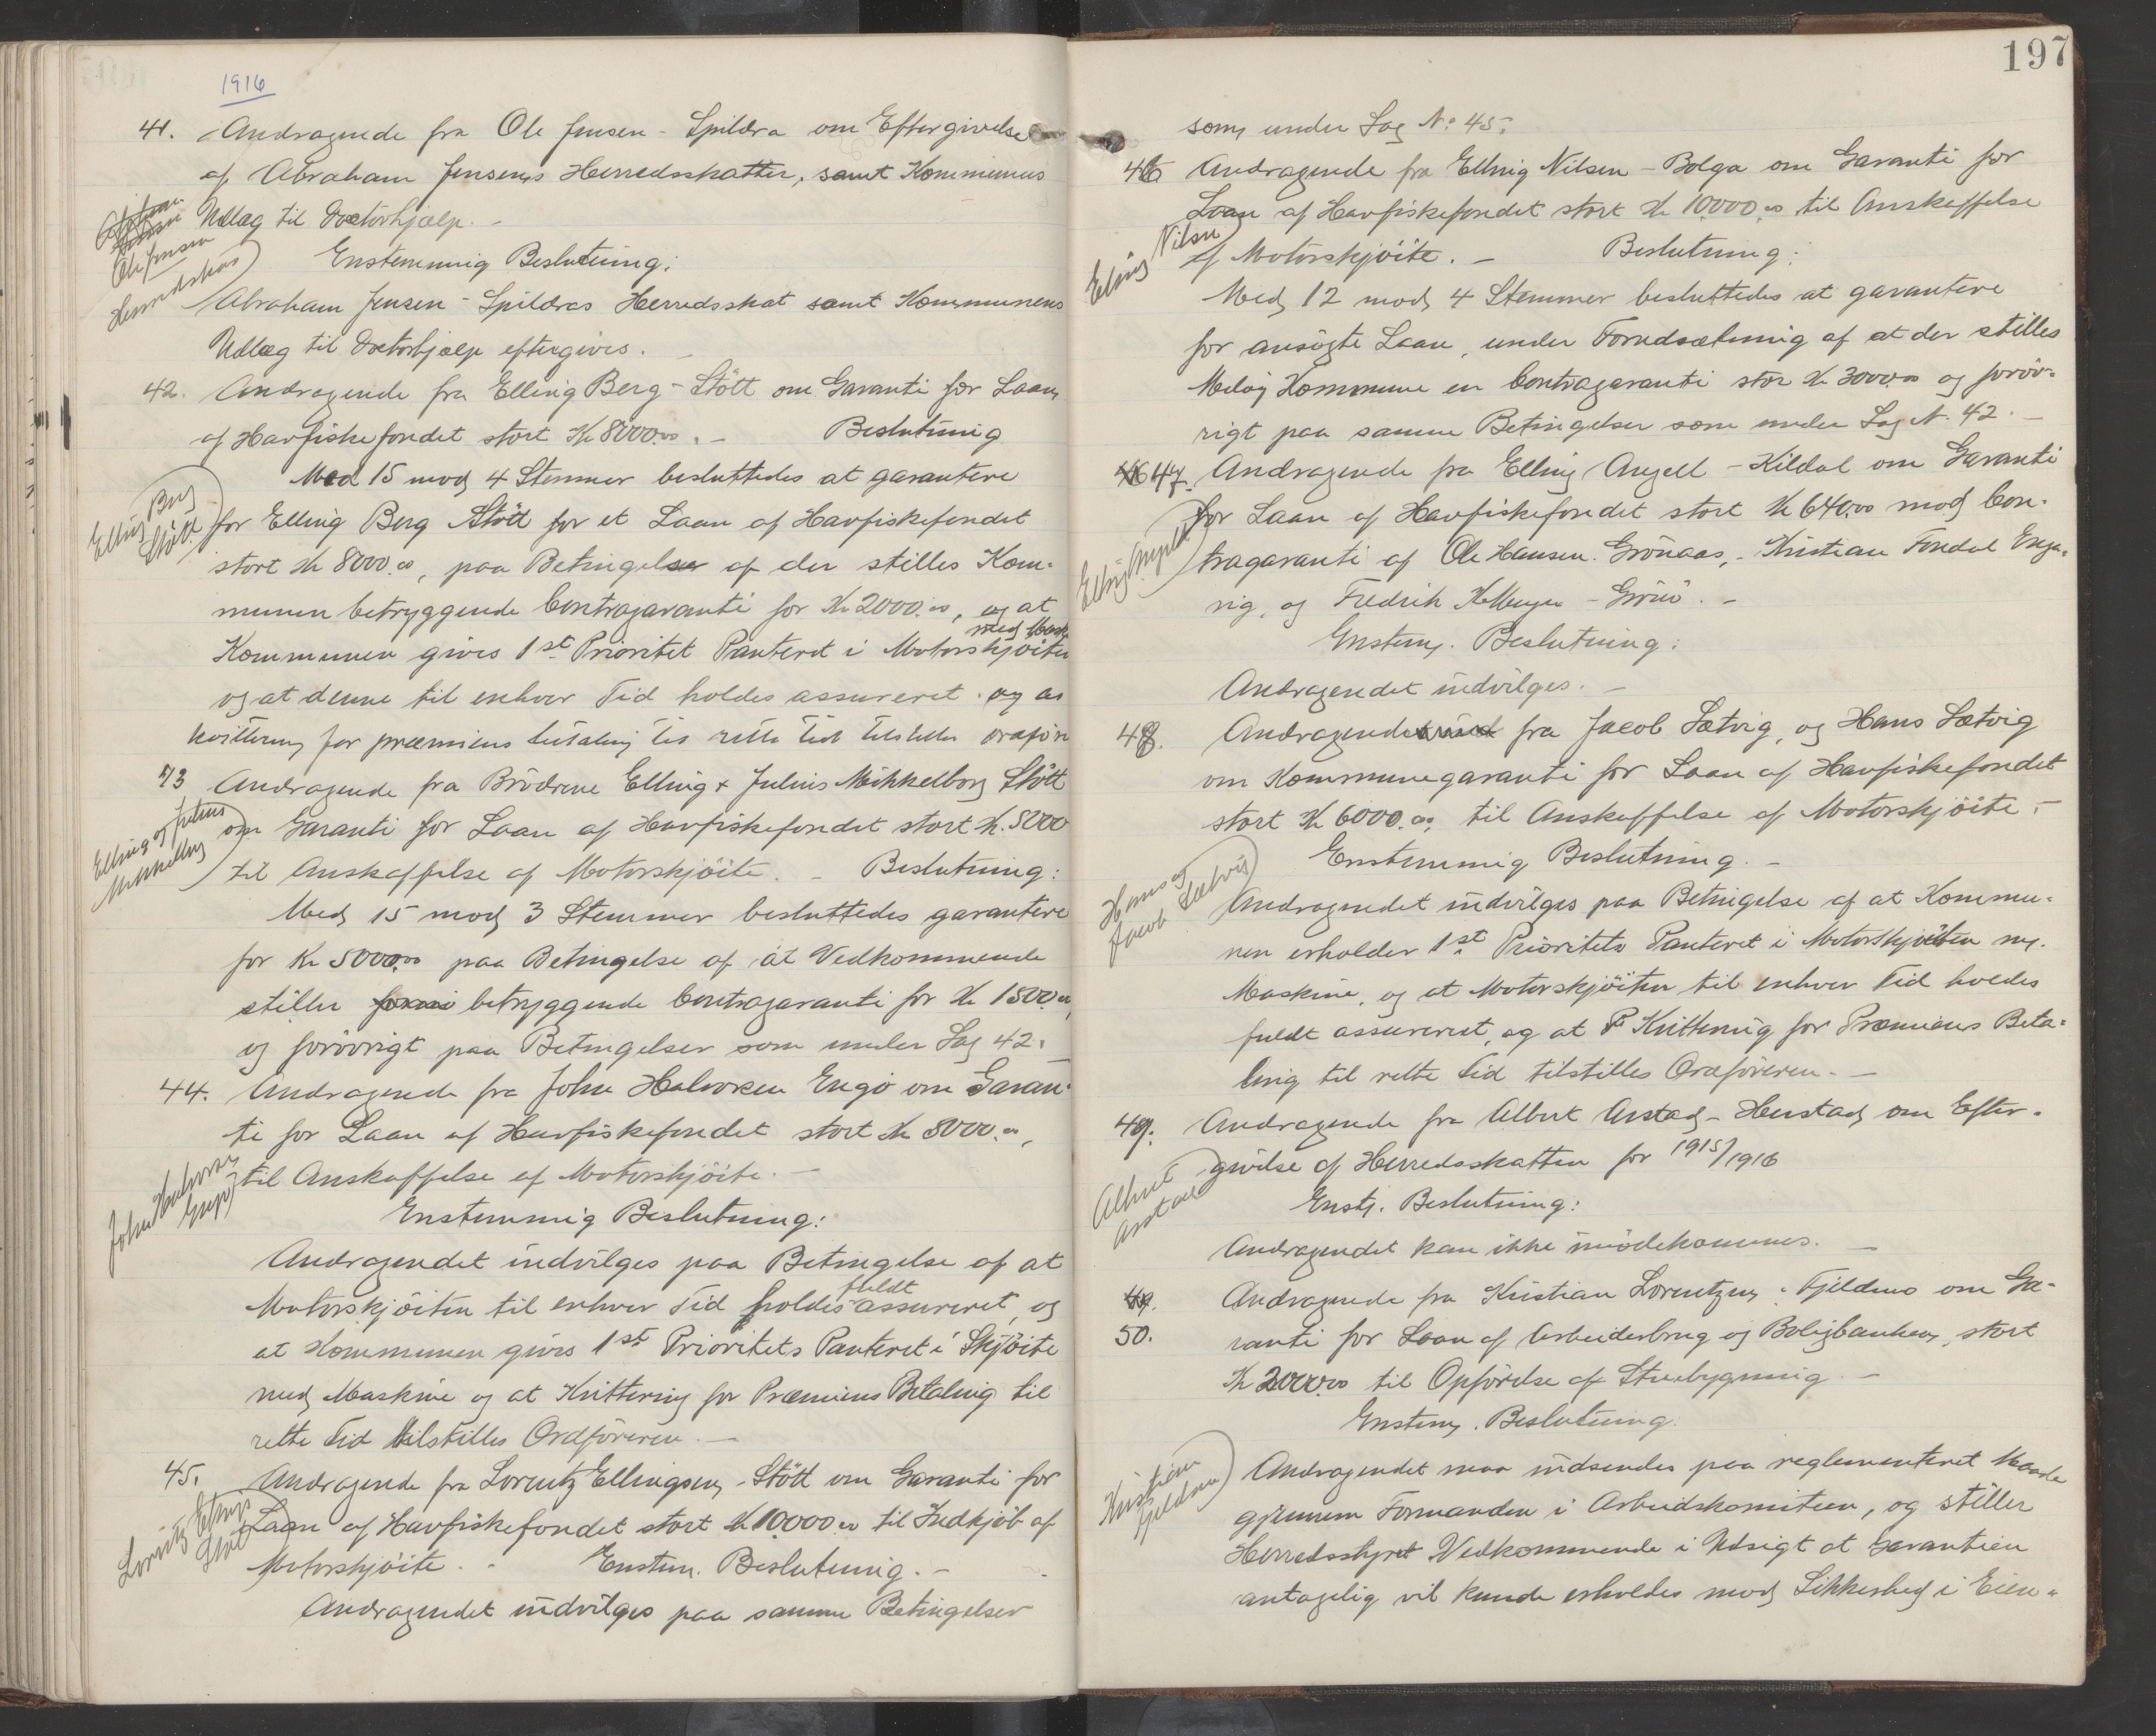 1916
41. Andragende fra Ole Jensen - Spildra om Eftergivelse
af Abraham Jensens Herredsskatter, samt Kommunens
Udlæg til Doctorhjælp. -
Ole Jensen
Herredsskat
Enstemmig Beslutning:
Abraham Jensen - Spildras Herredsskat samt Kommunens
Udlæg til Doctorhjælp eftergives. -
42. Andragende fra Elling Berg - Stött om Garanti for Laan
af Havfiskefondet stort Kr 8000.00. - Beslutning
Med 15 mod 4 Stemmer besluttedes at garantere
Elling Berg
Stött
for Elling Berg Stött for et Laan af Havfiskefondet
stort Kr 8000.00, paa Betingelser af der stilles Kom-
munen betryggende Contragaranti for Kr 2000.00, og at
med Mask
Kommunen gives 1st Prioritet Panteret i Motorskjöiten
og at denne til enhver Tid holdes assureret. og at
kvittering for præmiens betaling til rette tid tilstilles ordför
43 Andragende fra Brödrene Elling & Julius Mikkelborg Stött
Elling og Julius
Mikkelborg
om Garanti for Laan af Havfiskefondet stort Kr. 5000
til Anskaffelse af Motorskjöite. - Beslutning:
Med 15 mod 3 Stemmer besluttedes garantere
for Kr 5000.00 paa Betingelse af at Vedkommende
stiller betryggende Contragaranti for Kr 1500.00,
og forövrigt paa Betingelser som under Sag 42. -
44. Andragende fra John Halvorsen Engö om Garan-
ti for Laan af Havfiskefondet stort Kr 8000.00,
John Halvorsen
Engö
til Anskaffelse af Motorskjöite. -
Enstemmig Beslutning:
Andragendet indvilges paa Betingelse af at
fuldt
Motorskjöiten til enhver Tid holdes assureret, og
at Kommunen gives 1st Prioritets Panteret i Skjöite
med Maskine og at Kvittering for Præmiens Betaling til
rette Tid tilstilles Ordföreren. -
45. Andragende fra Lorentz Ellingsen - Stött om Garanti for
Lorentz Ellings
Stött
Laan af Havfiskefondet stort Kr 10000.00 til Indkjöb af
Motorskjöite. - Enstem. Beslutning. -
Andragendet indvilges paa samme Betingelser
197
som under Sag No. 45.
46 Andragende fra Elling Nilsen - Bolga om Garanti for
Laan af Havfiskefondet stort Kr 10000.00 til Anskaffelse
Elling Nilsen
af Motorskjöite. - Beslutning:
Med 12 mod 4 Stemmer besluttedes at garantere
for ansögte Laan, under Forudsætning af at der stilles
Melöy Kommune en Contragaranti stor Kr 3000.00 og foröv-
rigt paa samme Betingelser som under Sag N. 42. -
46 47. Andragende fra Elling Angell - Kildal om Garanti
Elling Angell
for Laan af Havfiskefondet stort Kr 6400.00 mod Con-
tragaranti af Ole Hansen Grönaas, - Kristian Fondal Enga-
vig, og Fredrik K Meyer - Grönö. -
Enstem. Beslutning:
Andragendet indvilges. -
48. Andragende fra Jacob Sætvig, og Hans Sætvig
om Kommunegaranti for Laan af Havfiskefondet
stort Kr 6000.00, til Anskaffelse af Motorskjöite. -
Enstemmig Beslutning. -
Hans og
Jacob Sætvig
Andragendet indvilges paa Betingelse af at Kommu-
nen erholder 1st Prioritets Panteret i Motorskjöiten m.
Maskine, og at Motorskjöiten til enhver Tid holdes
fuldt assureret, og at Kvittering for Præmiens Beta-
ling til rette Tid tilstilles Ordföreren. -
49. Andragende fra Albert Arstad - Herstad om Efter-
givelse af Herredsskatten for 1915/1916
Albert
Arstad
Enst. Beslutning:
Andragendet kan ikke imödekommes. -
49.
50.
Andragende fra Kristian Lorentzen - Fjeldmo om Ga-
ranti for Laan af Arbeiderbrug og Boligbanken, stort
Kr 2000.00 til Opförelse af Stuebygning. -
Enstem. Beslutning.
Kristian
Fjeldmo
Andragendet maa indsendes paa reglementeret Maade
gjennem Formanden i Arbeidskomiteen, og stiller
Herredsstyret Vedkommende i Udsigt at Garantien
antagelig vil kunde erholdes mod Sikkerhed i Eien-